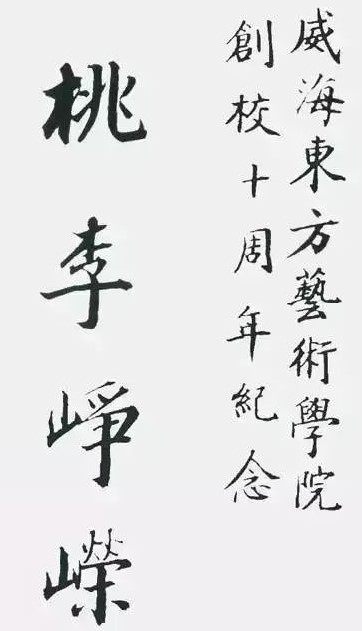 威海東方藝術學院
創校十周年紀念
桃李崢嶸